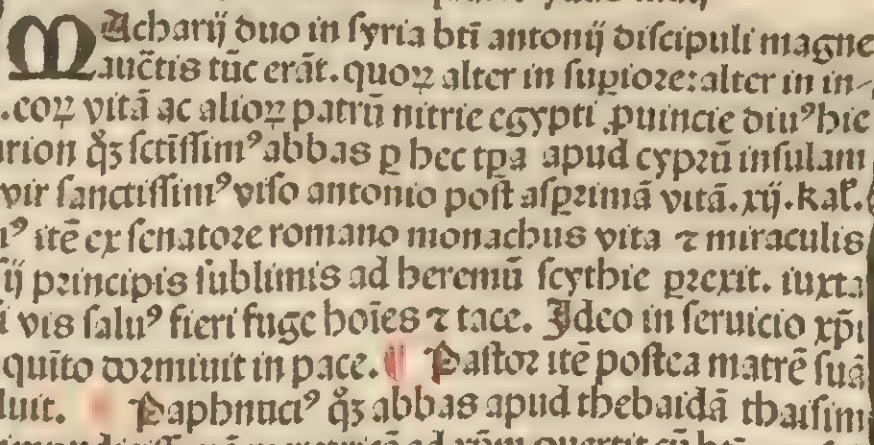 MAcharij duo in syria bti antonij discipuli magne
auctis tūc erāt. quoꝝ alter in supiore: alter in in-
.eoꝝ vitā ac alioꝝ patrū nitrie egypti ꝓuincie diuꝰ hic
rion qꝫ sctissimꝰ abbas ꝑ hec tꝑa apud cyprū insulam
vir sanctissimꝰ viso antonio post asperimā vitā. xij. kal.
ꝰ itē ex senatore romano monachus vita ⁊ miraculis
ij principis sublimis ad heremū scythie ꝑrexit. iuxta
vis saluꝰ fieri fuge hoīes ⁊ tace. Ideo in seruicio xp̄i
quīto dormiuit in pace. ¶ Pastor itē postea matrē suā
luit. Paphnuciꝰ qꝫ abbas apud thebaidā thaisim